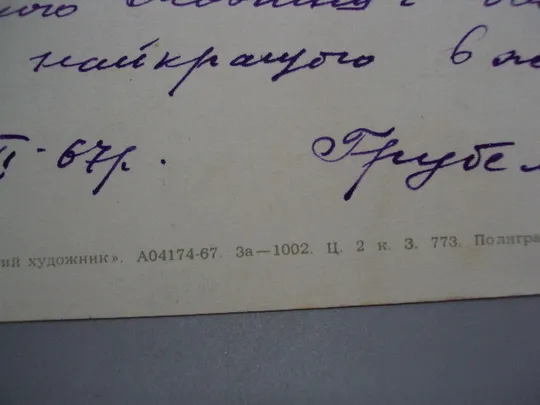 найкращого в
67р. Грубе
ий художник». А04174-67. За—1002. Ц. 2 к. З. 773. Полигра